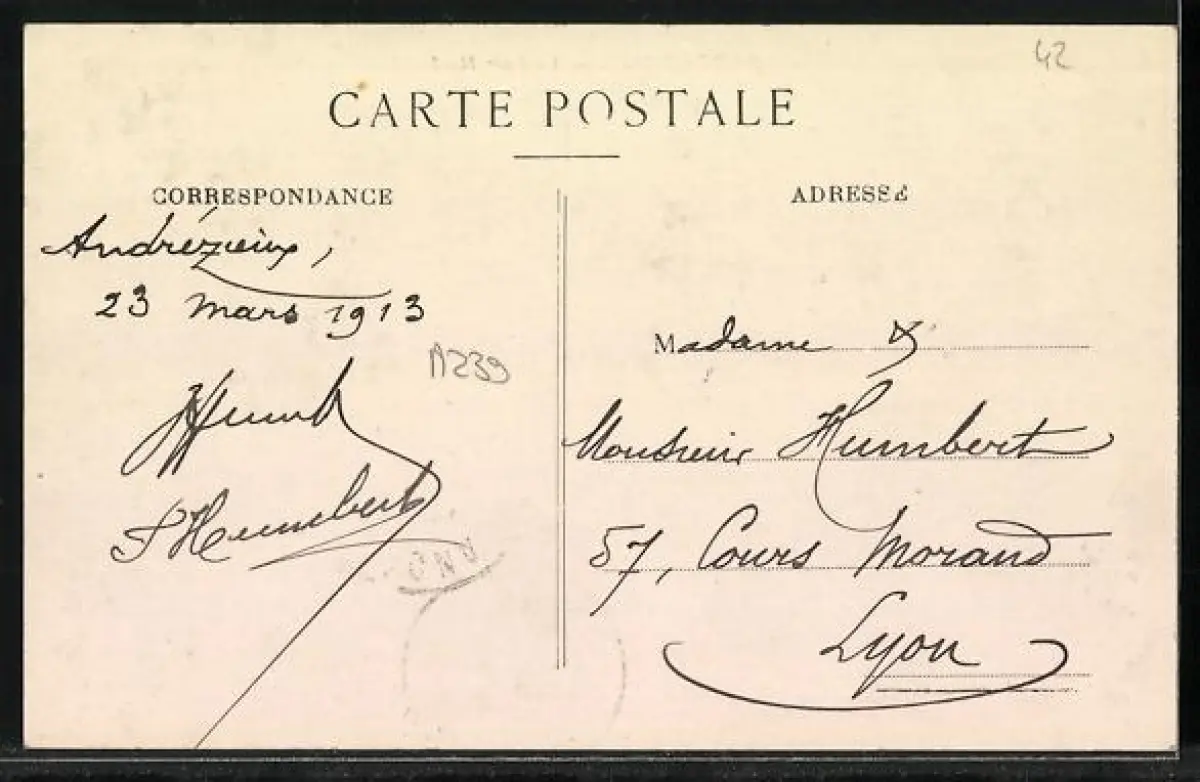 42
CARTE POSTALE
CORRESPONDANCE
ADRESSE
Andrézieux,
23 mars 1913
A239
S Humbert
Madame &
Monsieur Humbert
57, Cours Morand
Lyon